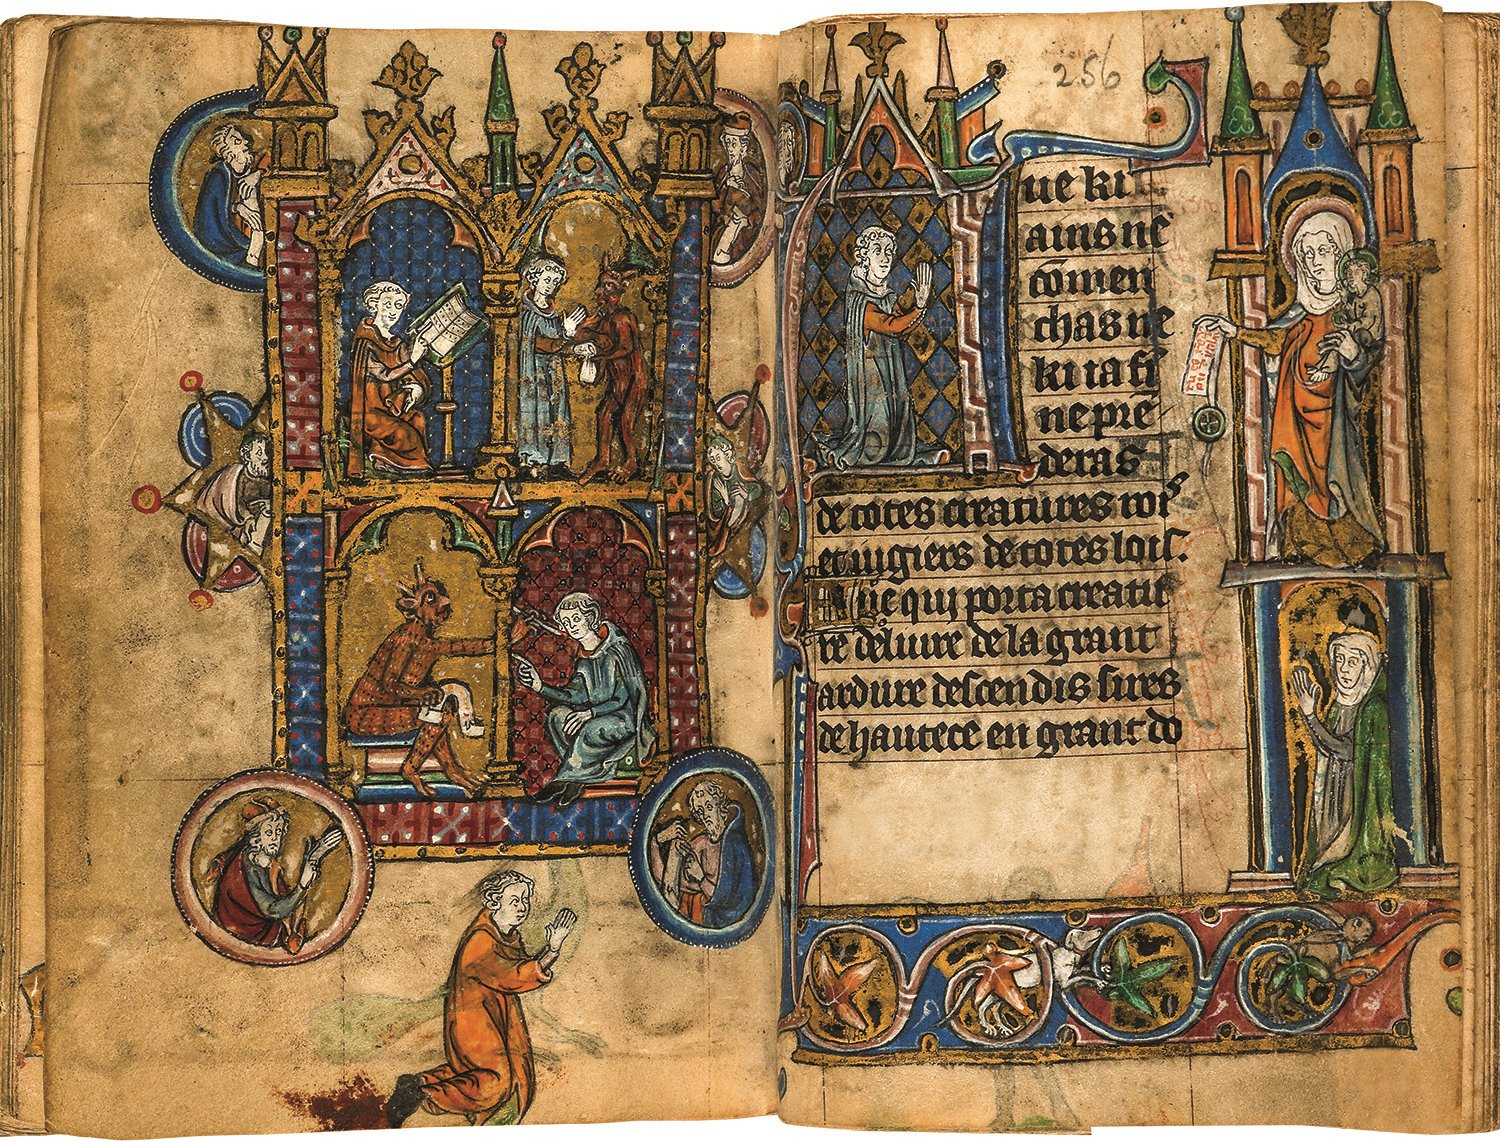 256
Aue ki
ains ne
cōmen
chas ne
ki ia fī
ne prē
deras
de totes creatures roiˢ
et iugiers de totes lois.
Aue qui porta creatu
re deliure de la grant
ardure descendis sures
de hautece en grant do